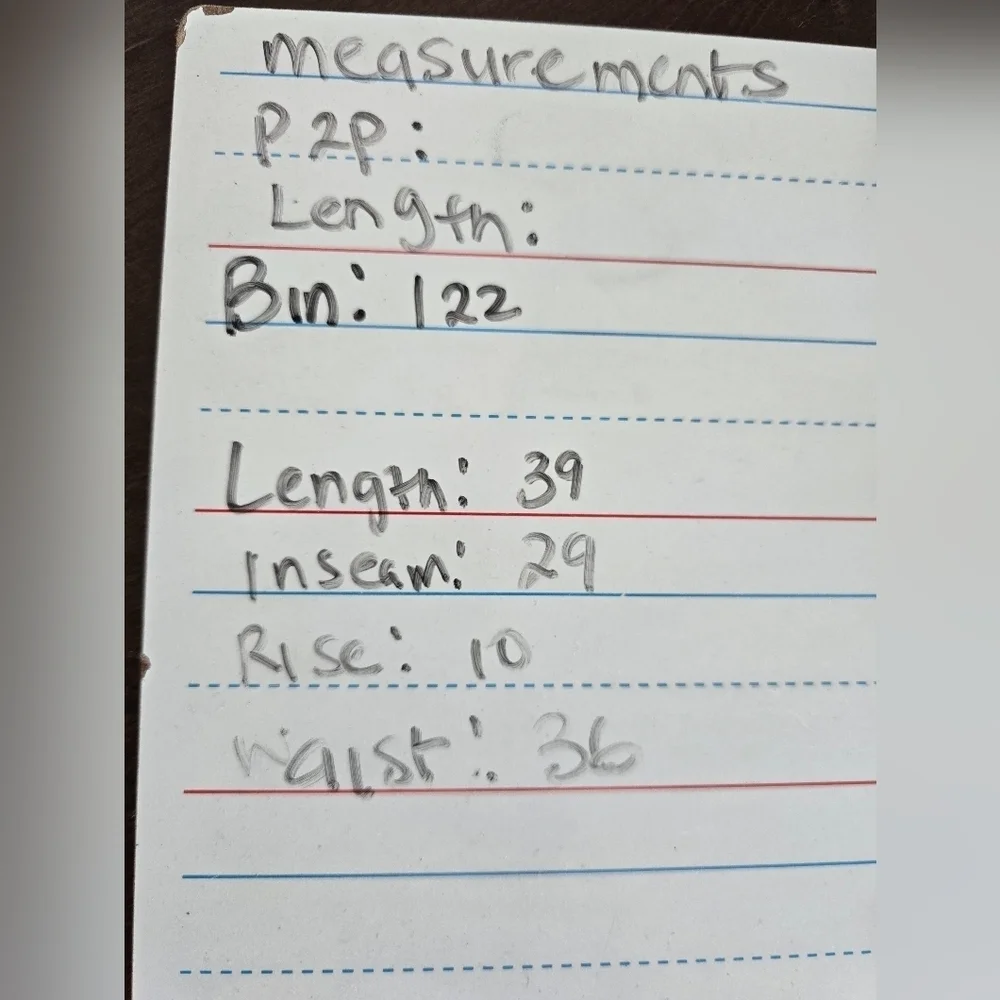 measurements
P2P:
Length:
Bin: 122
Length: 39
Inseam: 29
Rise: 10
Waist: 36